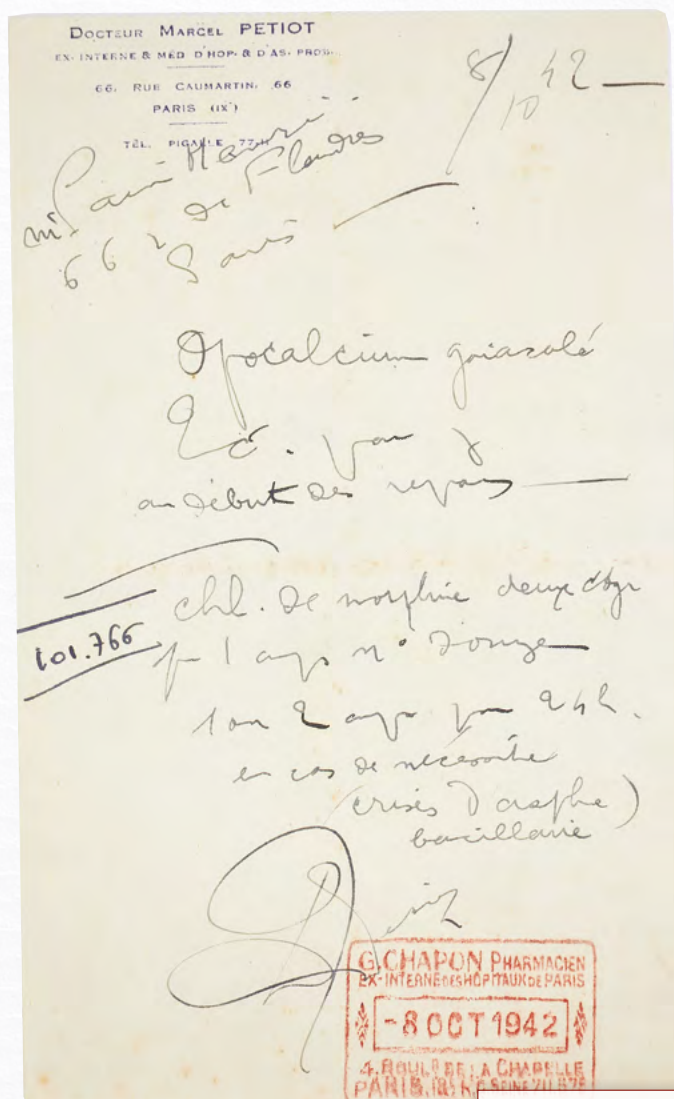 DOCTEUR MARCEL PETIOT
EX-INTERNE & MÉD D'HOP. & D'AS. PROV.
66, RUE CAUMARTIN, 66
PARIS (IX^e)
TÉL. PIGALLE 77-11
8/10 42
66 r de Flandres
Paris
Opocalcium gaiacolé
2 c. par j
au début des repas
chl. de morphine deux ctgr
101.766
pr 1 amp n° douze
1 ou 2 amp par 24h.
en cas de nécessité
(crises d'asphe)
bacillaire
G. CHAPON PHARMACIEN
EX-INTERNE DES HÔPITAUX DE PARIS
-8 OCT 1942
4, BOUL^D DE LA CHAPELLE
PARIS